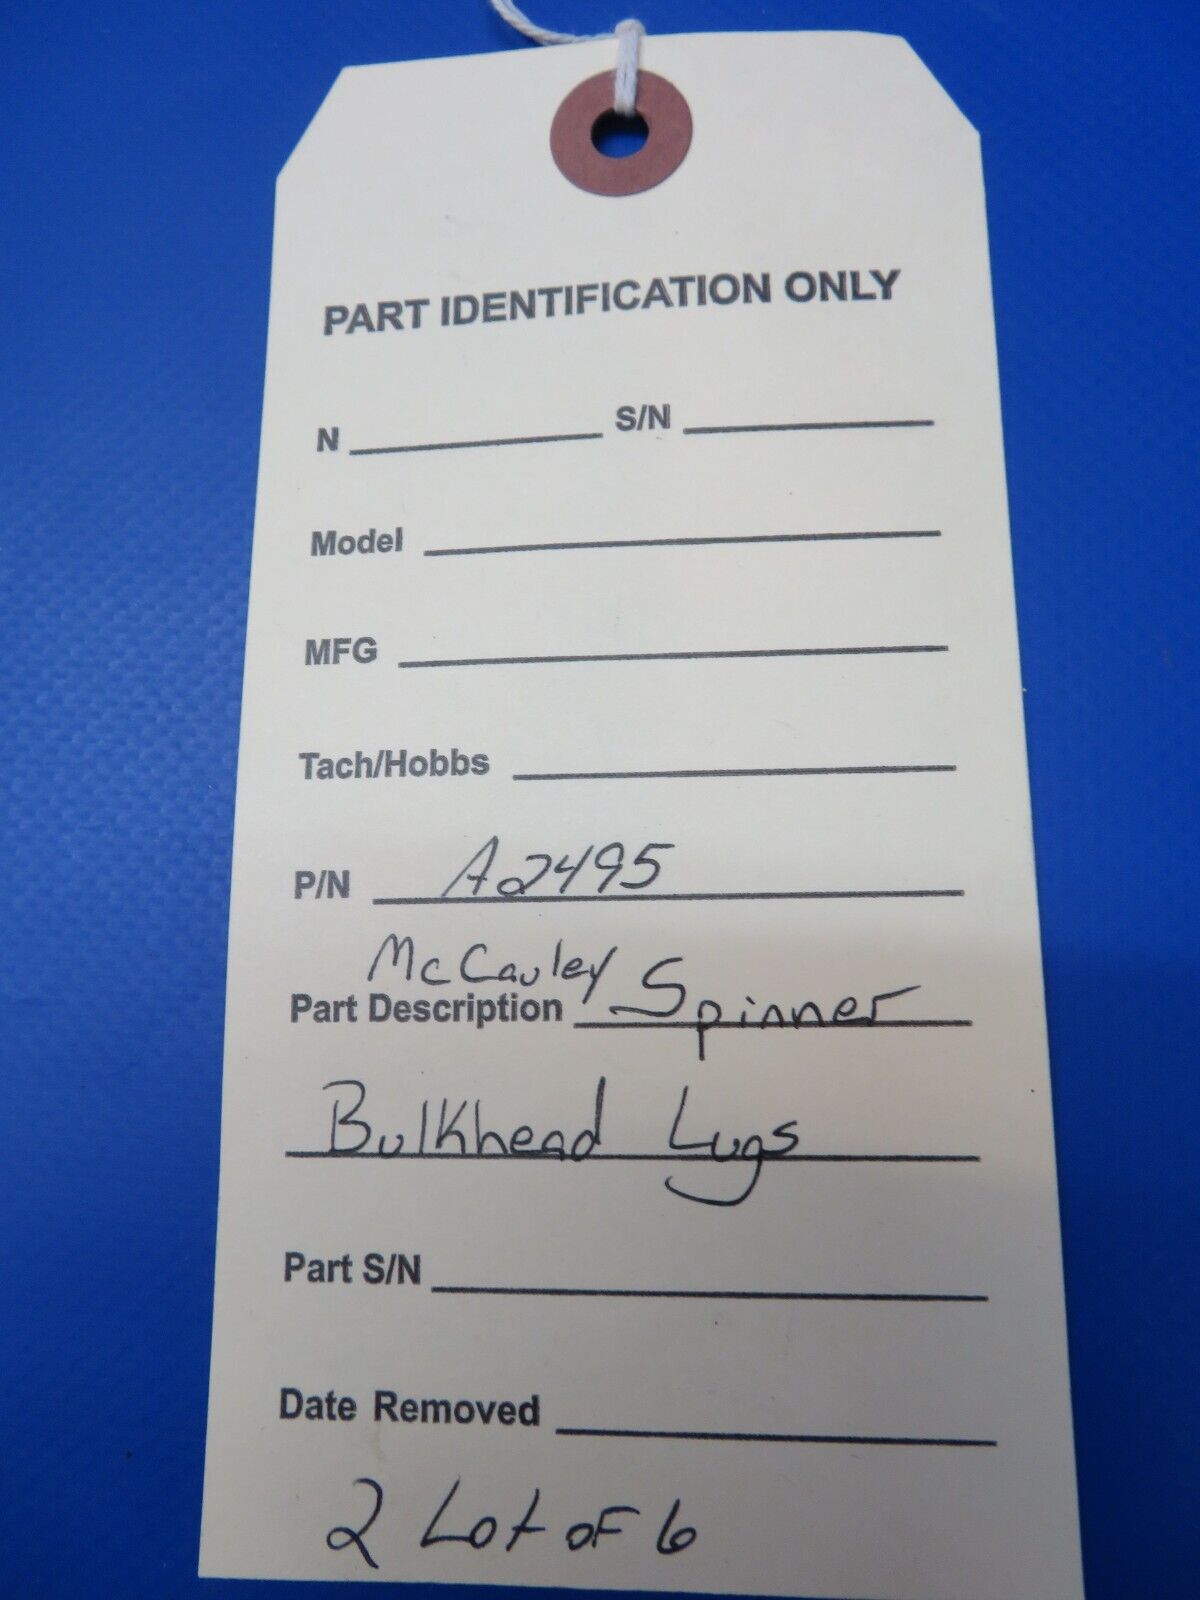 PART IDENTIFICATION ONLY
N S/N
Model
MFG
Tach/Hobbs
P/N A2495
McCauley
Part Description Spinner
Bulkhead Lugs
Part S/N
Date Removed
2 Lot of 6